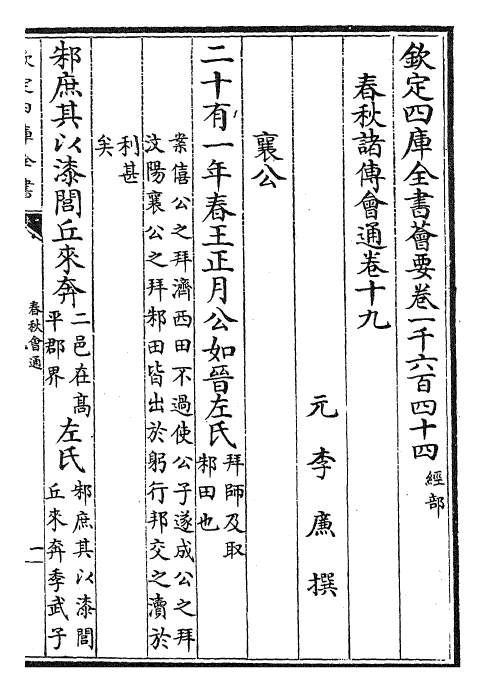 欽定四庫全書薈要卷一千六百四十四 經部
春秋諸傳會通卷十九
元 李廉 撰
襄公
二十有一年春王正月公如晉左氏 拜師及取
邾田也
案僖公之拜濟西田不過使公子遂成公之拜
汶陽襄公之拜邾田皆出於躬行邦交之瀆於
利甚
矣
邾庶其以漆閭丘來奔 二邑在高
平郡界 左氏 邾庶其以漆閭
丘來奔季武子
欽定四庫全書
春秋會通
一